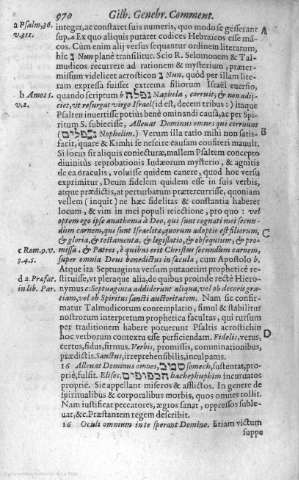 970 Gilb. Genebr. Comment.
a Psalm. 36. v. 25. integer, ac constaret suis numeris, quo modo se gesserant A
sup. a Ex quo aliqui putaret codices Hebraicos esse mã-
cos. Cùm enim alij versus sequantur ordinem literarum,
hîc נ Nun planè transilitur. Scio R. Selomonem & Tal-
mudicos recurrere ad rationem & mysterium, præter-
missum videlicet acrosticon נ Nun, quòd per illam lite-
ram expressa fuisset extrema filiorum Israël euersio,
b Amos 5. v. 2. quando scriptum b נפלה Naphela, corruit, & non adi-
ciet, vt resurgat virgo Israël (id est, decem tribus:) itaque
Psalten inuertisse potiùs benè ominandi causa, ac per Spi-
ritum S. subiecisse, Alleuat Dominus omnes qui corruunt
(נפלים Nophelim.) Verum illa ratio mihi non satis-
facit, quare & Kimhi se nescire causam consideti mauult.
Si locus sit aliquis coniecturæ, mallem Psalten conceptis
diuinitùs reprobationis Iudæorum mysterio, & agnitis
de ea oraculis, voluisse quidem canere, quod hoc versu
exprimitur, Deum fidelem quidem esse in suis verbis,
atque prædictis, at perturbatum prætercurrisse, quoniam
vellem (inquit) ne hæc fidelitas & constantia haberet
locum, & vim in mei populi reiectione, pro quo c vel
optem ego ipse anathema à Deo, qui sunt cognati mei secun-
dum carnem, qui sunt Israëlitæ, quorum adoptio est filiorum, C
& gloria, & testamenta, & legislatio, & obsequium, & pro-
c Rom. 9. v. 3. 4. 5. missa, & Patres, è quibus erit Christus secundùm carnem,
super omnia Deus benedictus in sæcula, cum Apostolo b.
Atque ita Septuaginta versum putauerim propheticè re-
stituisse, vt pleraque alia, de quibus proinde rectè Hiero-
d 2 Præfat. in lib. Par. nymus: d Septuaginta addiderunt aliqua, vel ob decoris gra-
tiam, vel ob Spiritus sancti auctoritatem. Nam sic confir-
matur Talmudicorum contemplatio, simul & stabilitur
nostrorum interpretum prophetica facultas, qui rursum
per traditionem habere potuerunt Psaltis acrostichin D
hoc verborum contextu esse perficiendam. Fidelis, verus,
certus, fidus, firmus. Verbis, promissis, comminationibus,
prædictis. Sanctus, irreprehensibilis, inculpatus.
15 Alleuat Dominus omnes, סומך somech, sustentat, pro-
priè, fulsit. Elisos, הכפופים hachephuphim incuruatos
propriè. Sic appellant miseros & afflictos. In genere de
spiritualibus & corporalibus morbis, quos omnes tollit.
Nam iustificat peccatores, ægros sanat, oppressos suble-
uat, &c. Præstantem regem describit.
16 Oculi omnium in te sperant Domine. Etiam victum
suppe